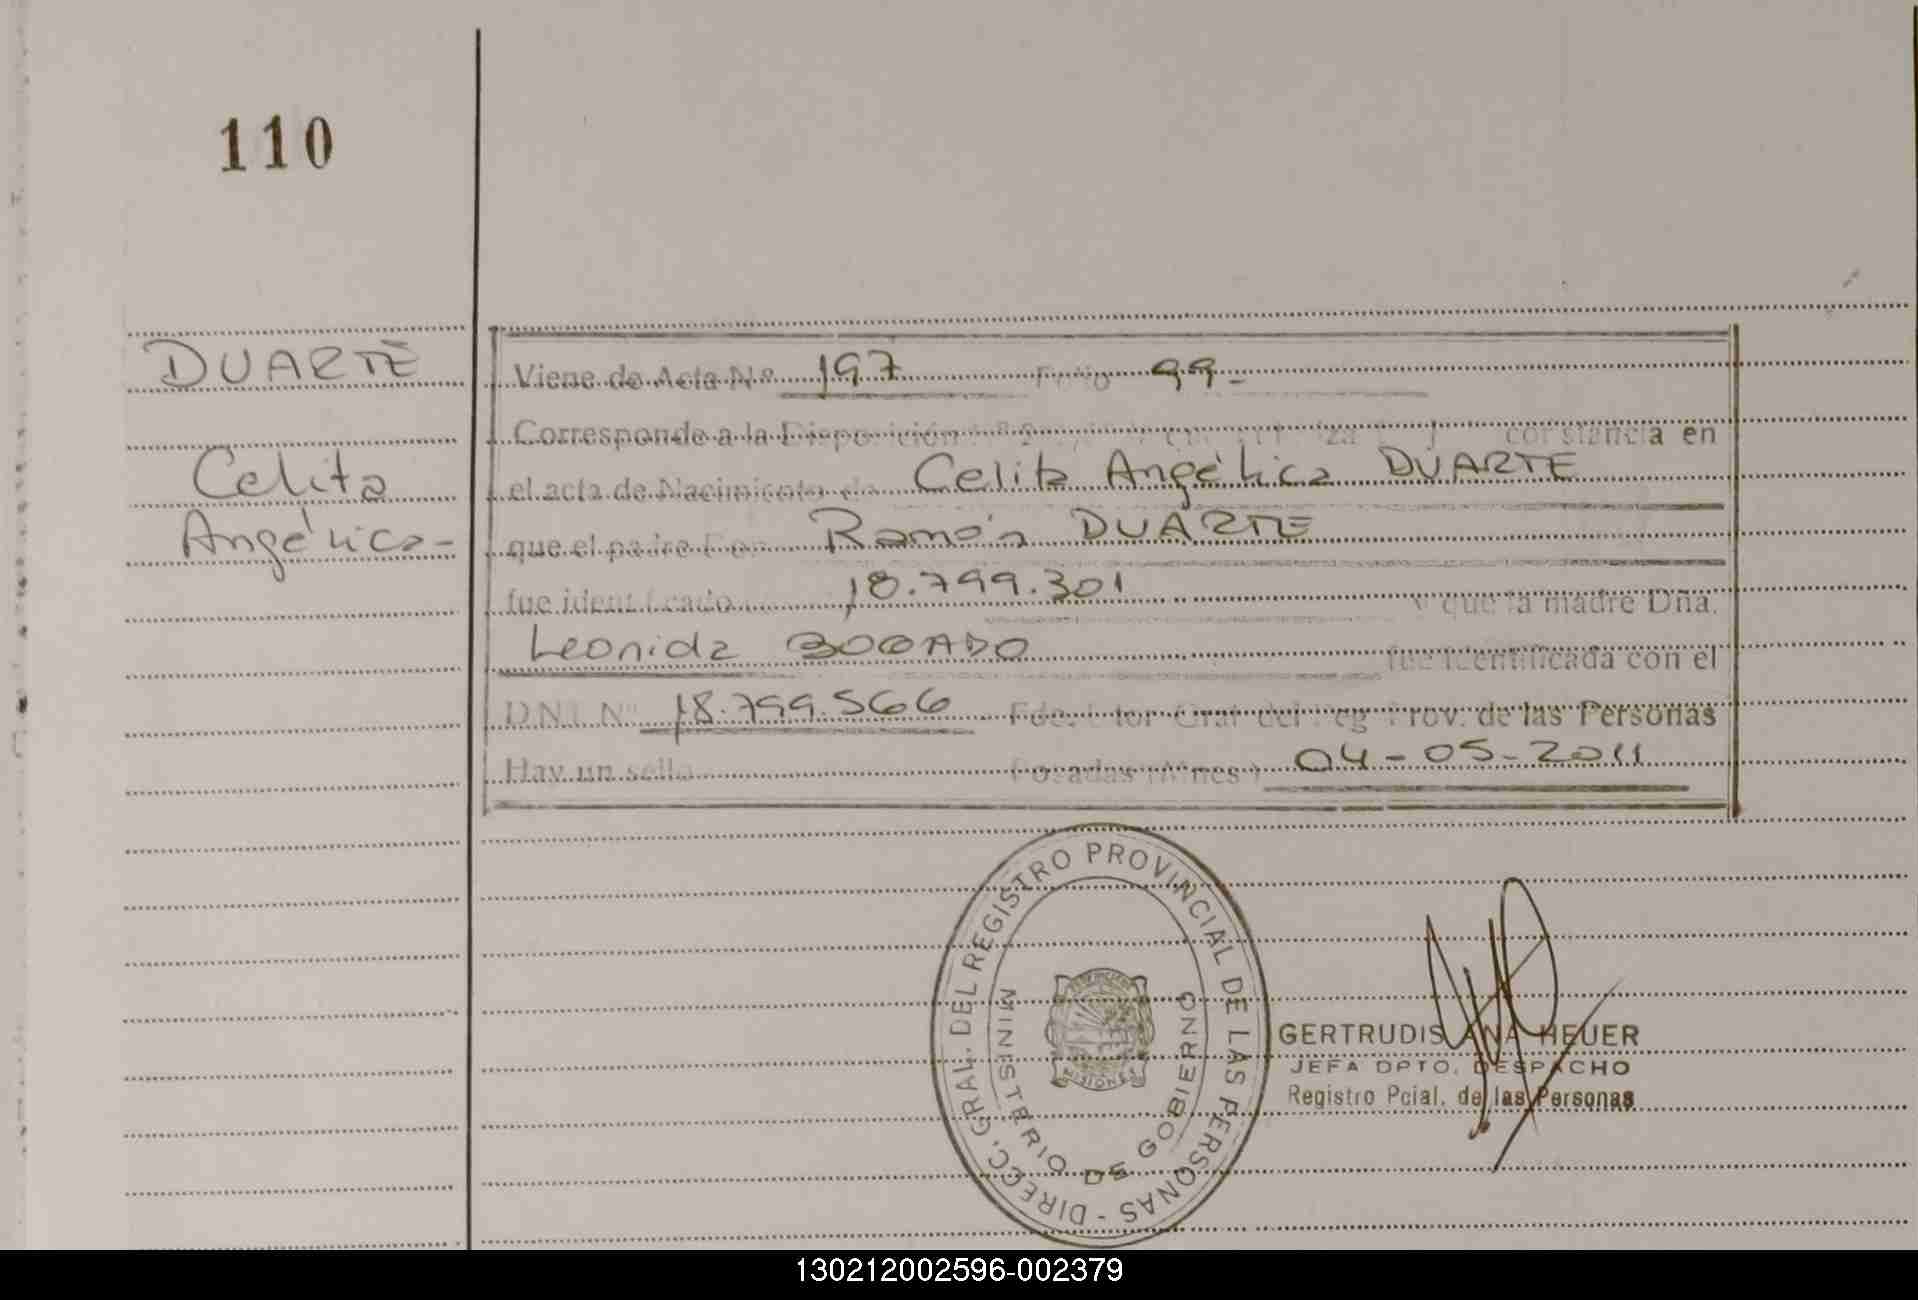 110
DUARTE
Celita
Angélica-
Viene de Acta Nº 197 Folio 99-
Corresponde a la Disposición constancia en
el acta de Nacimiento de Celita Angélica DUARTE
que el padre Don Ramón DUARTE
fue identificado 18.799.301 y que la madre Dña.
Leonida BOGADO fue identificada con el
D.N.I. Nº 18.799.566 Fdo. Director Gral del Reg Prov. de las Personas
Hay un sello Posadas (Mnes) 04-05-2011
DIRECC. GRAL. DEL REGISTRO PROVINCIAL DE LAS PERSONAS -
MINISTERIO DE GOBIERNO
MISIONES
GERTRUDIS ANA HEUER
JEFA DPTO. DESPACHO
Registro Pcial. de las Personas
130212002596-002379